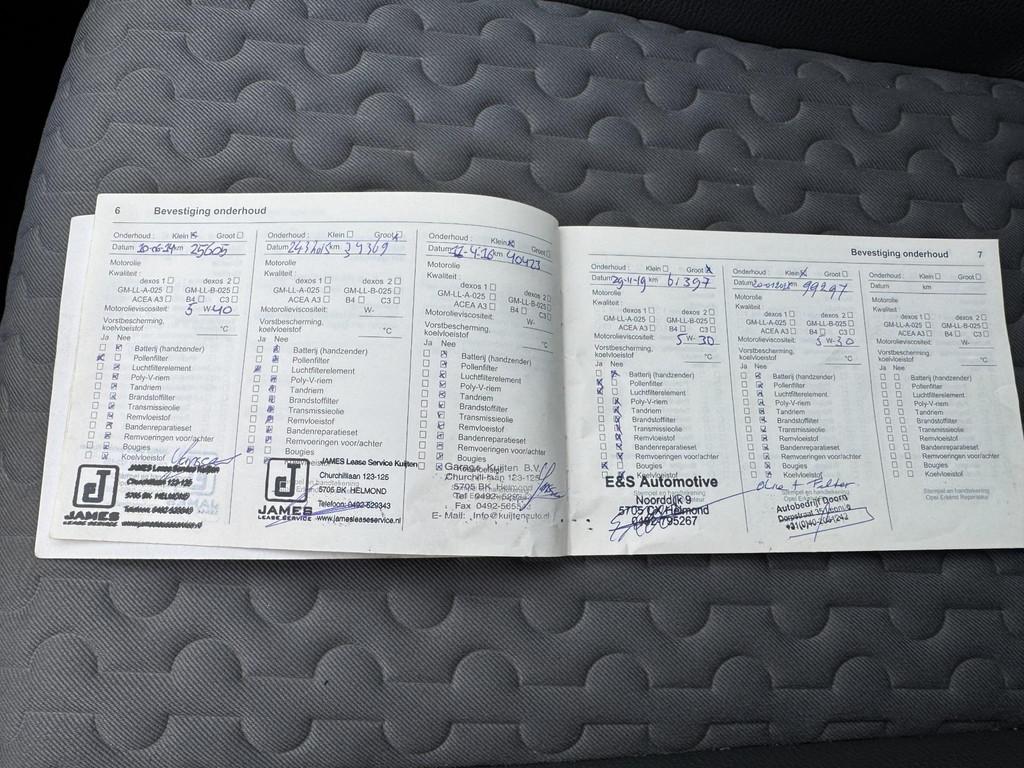 6 Bevestiging onderhoud
Onderhoud: Klein Groot
Datum 20-06-14 km 25605
Motorolie
Kwaliteit:
dexos 1 dexos 2
GM-LL-A-025 GM-LL-B-025
ACEA A3 B4 C3
Motorolieviscositeit: 5 W-40
Vorstbescherming,
koelvloeistof °C
Ja Nee
Batterij (handzender)
Pollenfilter
Luchtfilterelement
Poly-V-riem
Tandriem
Brandstoffilter
Transmissieolie
Remvloeistof
Bandenreparatieset
Remvoeringen voor/achter
Bougies
Koelvloeistof
JAMES Lease Service Kuijten
Churchilllaan 123-125
5705 BK HELMOND
Telefoon: 0492-529343
www.jamesleaseservice.nl
JAMES
LEASE SERVICE
Onderhoud: Klein Groot
Datum km 34369
Motorolie
Kwaliteit:
dexos 1 dexos 2
GM-LL-A-025 GM-LL-B-025
ACEA A3 B4 C3
Motorolieviscositeit: W-
Vorstbescherming,
koelvloeistof °C
Ja Nee
Batterij (handzender)
Pollenfilter
Luchtfilterelement
Poly-V-riem
Tandriem
Brandstoffilter
Transmissieolie
Remvloeistof
Bandenreparatieset
Remvoeringen voor/achter
Bougies
JAMES Lease Service Kuijten
Churchilllaan 123-125
5705 BK HELMOND
Telefoon: 0492-529343
www.jamesleaseservice.nl
JAMES
LEASE SERVICE
Onderhoud: Klein Groot
Datum 12-4-16 km 40473
Motorolie
Kwaliteit:
dexos 1 dexos 2
GM-LL-A-025 GM-LL-B-025
ACEA A3 B4 C3
Motorolieviscositeit: W-
Vorstbescherming,
koelvloeistof °C
Ja Nee
Batterij (handzender)
Pollenfilter
Luchtfilterelement
Poly-V-riem
Tandriem
Brandstoffilter
Transmissieolie
Remvloeistof
Bandenreparatieset
Remvoeringen voor/achter
Bougies
Garage Kuijten B.V.
Churchill-laan 123-125
5705 BK Helmond
Tel 0492-5293
Fax 0492-5655
E-Mail: Info@kuijtenauto.nl
Bevestiging onderhoud 7
Onderhoud: Klein Groot
Datum 29-11-19 km 61397
Motorolie
Kwaliteit:
dexos 1 dexos 2
GM-LL-A-025 GM-LL-B-025
ACEA A3 B4 C3
Motorolieviscositeit: 5 W-30
Vorstbescherming,
koelvloeistof °C
Ja Nee
Batterij (handzender)
Pollenfilter
Luchtfilterelement
Poly-V-riem
Tandriem
Brandstoffilter
Transmissieolie
Remvloeistof
Bandenreparatieset
Remvoeringen voor/achter
Bougies
Koelvloeistof
E&S Automotive
Noorddijk 9
5705 DX Helmond
0492-795267
Onderhoud: Klein Groot
Datum km 99297
Motorolie
Kwaliteit:
dexos 1 dexos 2
GM-LL-A-025 GM-LL-B-025
ACEA A3 B4 C3
Motorolieviscositeit: 5 W-30
Vorstbescherming,
koelvloeistof °C
Ja Nee
Batterij (handzender)
Pollenfilter
Luchtfilterelement
Poly-V-riem
Tandriem
Brandstoffilter
Transmissieolie
Remvloeistof
Bandenreparatieset
Remvoeringen voor/achter
Bougies
Koelvloeistof
Autobedrijf Doorn
Onderhoud: Klein Groot
Datum km
Motorolie
Kwaliteit:
dexos 1 dexos 2
GM-LL-A-025 GM-LL-B-025
ACEA A3 B4 C3
Motorolieviscositeit: W-
Vorstbescherming,
koelvloeistof °C
Ja Nee
Batterij (handzender)
Pollenfilter
Luchtfilterelement
Poly-V-riem
Tandriem
Brandstoffilter
Transmissieolie
Remvloeistof
Bandenreparatieset
Remvoeringen voor/achter
Bougies
Koelvloeistof
Stempel en handtekening
Opel Erkend Reparateur